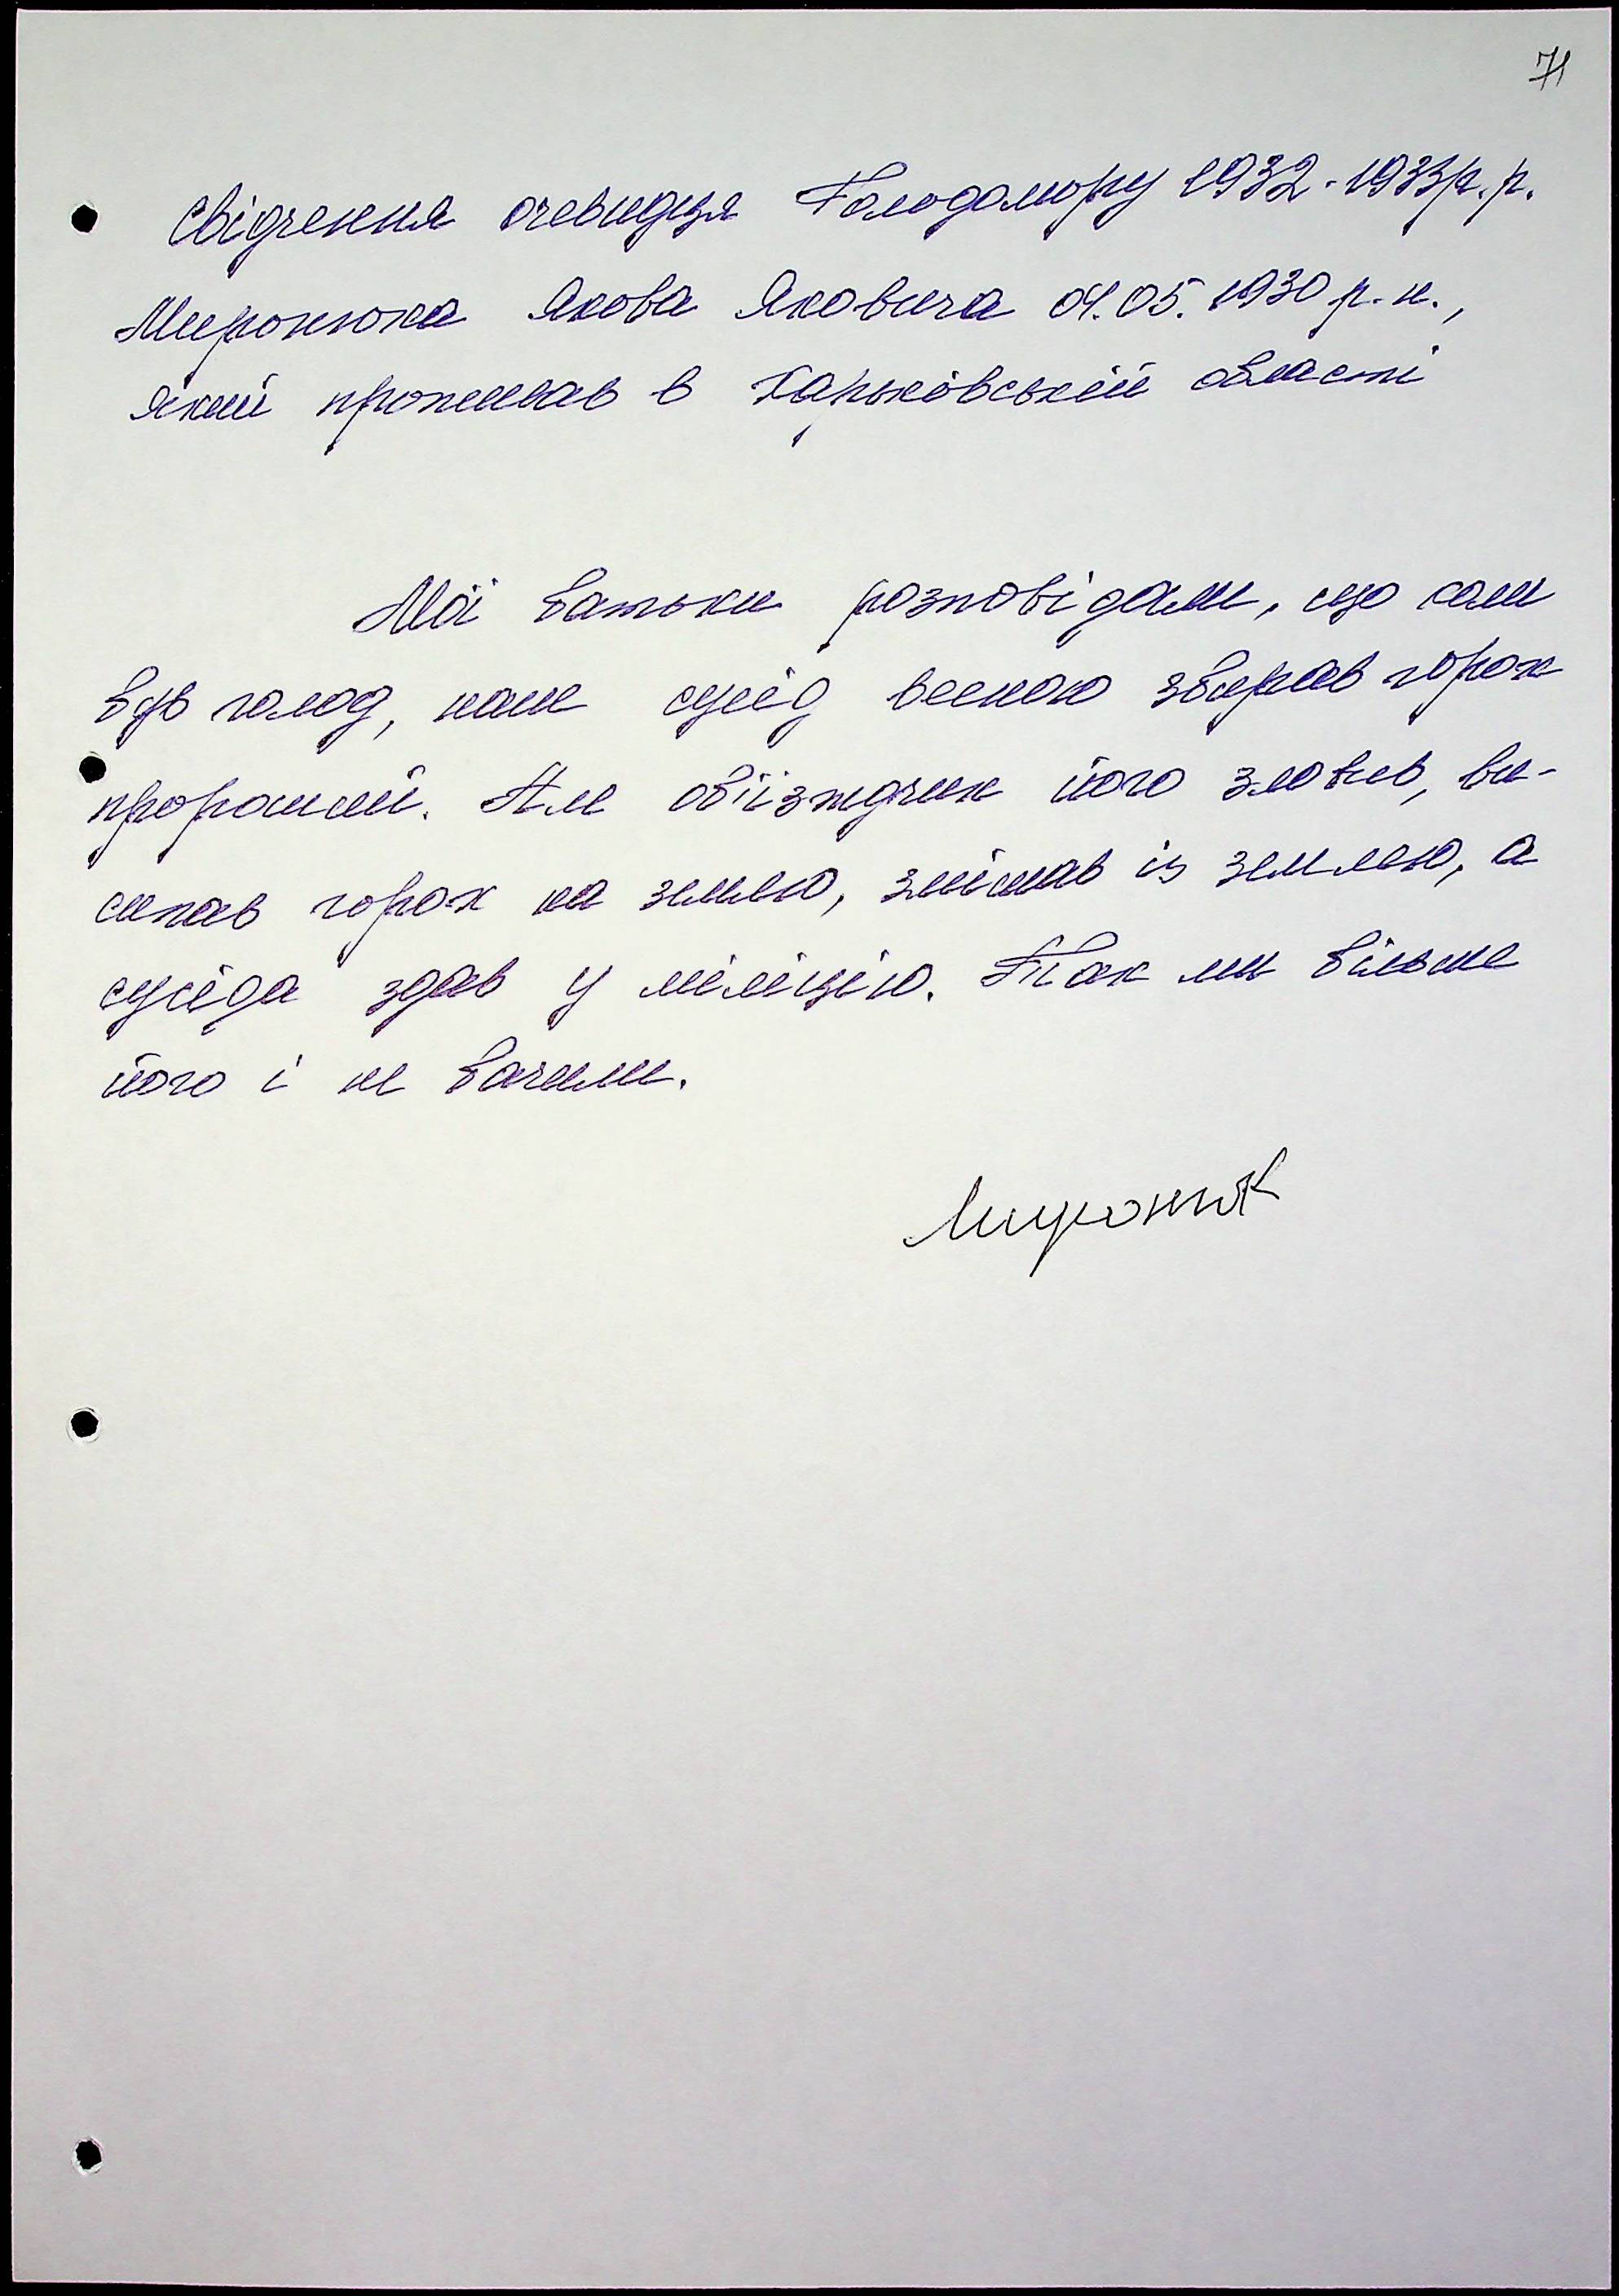 71
Свідчення очевидця Голодомору 1932-1933р.р.
Миронюка Якова Яковича 01.05.1930 р.н.,
який проживав в Харьківській області
Мої батьки розповідали, що коли
був голод, наш сусід весною збирав горох
пророслий. Але обїізждчик його зловив, ви-
сипав горох на землю, змішав із землею, а
сусіда здав у міліцію. Так ми більше
його і не бачили.
Миронюк